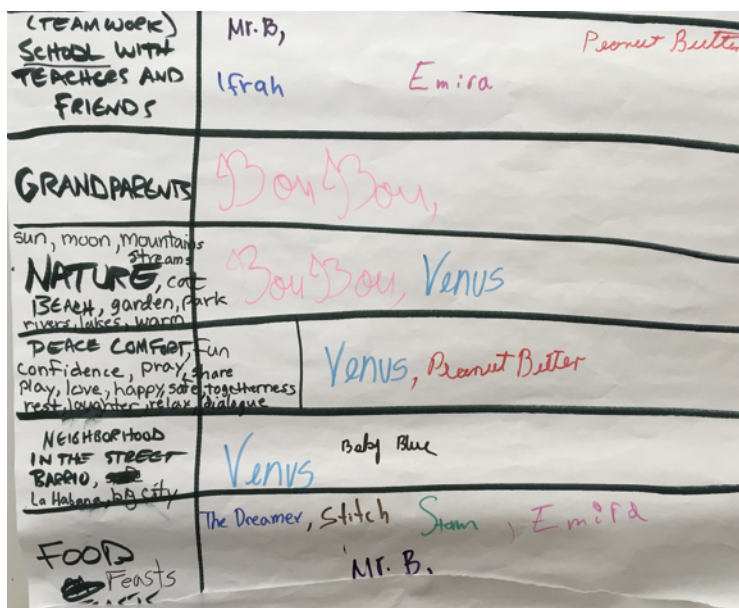 (TEAMWORK)
SCHOOL WITH
TEACHERS AND
FRIENDS
Mr. B,
Peanut Butter
Ifrah
Emira
GRANDPARENTS
Bou Bou,
sun, moon, mountains
streams
NATURE, cat
BEACH, garden, park
rivers, lakes, warm
Bou Bou, Venus
PEACE COMFORT, fun
confidence, pray, share
play, love, happy, safe, togetherness
rest, laughter, relax, dialogue
Venus, Peanut Butter
NEIGHBORHOOD
IN THE STREET
BARRIO,
La Habana, big city
Venus
Baby Blue
FOOD
Feasts
The Dreamer, Stitch
, Emira
Mr. B.